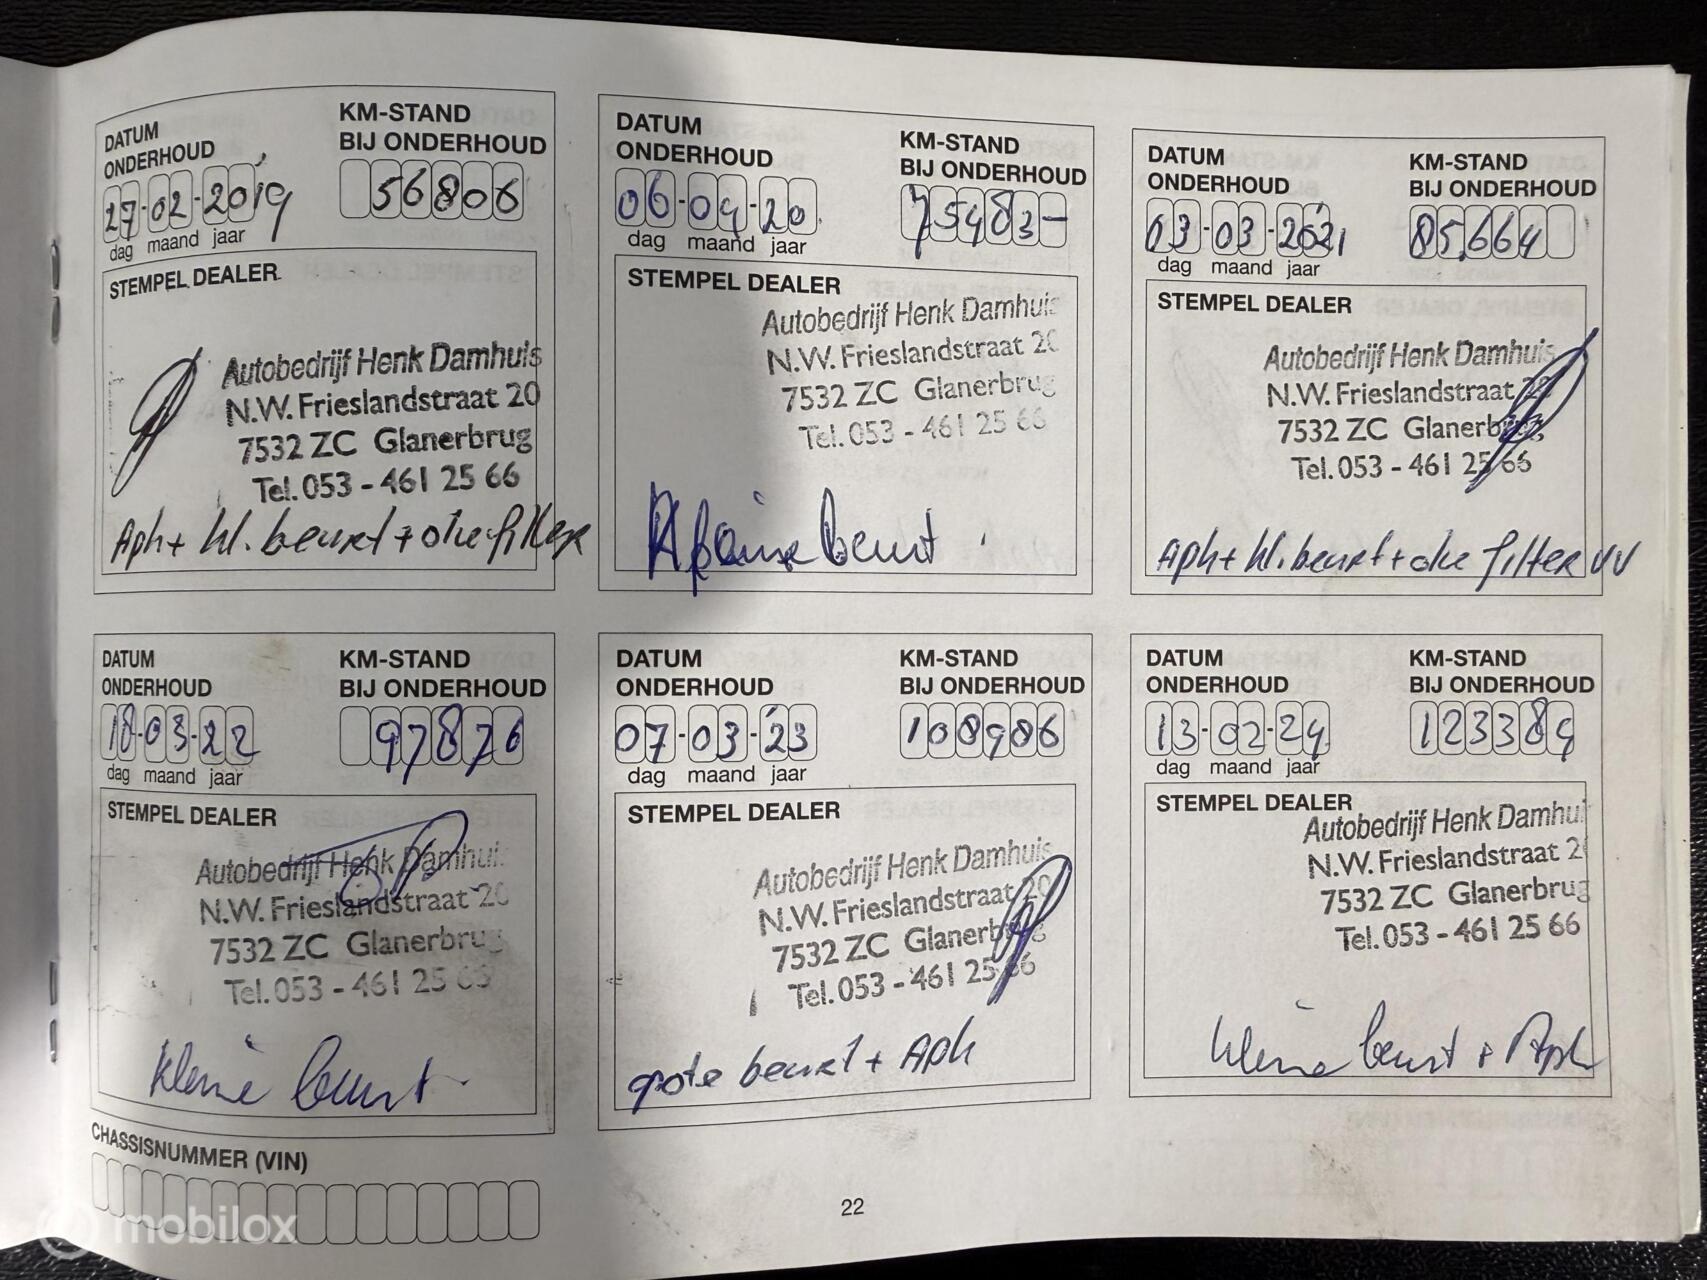 DATUM
ONDERHOUD
KM-STAND
BIJ ONDERHOUD
27-02-2019
56806
dag maand jaar
STEMPEL DEALER
Autobedrijf Henk Damhuis
N.W. Frieslandstraat 20
7532 ZC Glanerbrug
Tel. 053 - 461 25 66
Aph + kl. beurt + olie filter
DATUM
ONDERHOUD
KM-STAND
BIJ ONDERHOUD
06-04-20
75483-
dag maand jaar
STEMPEL DEALER
Autobedrijf Henk Damhuis
N.W. Frieslandstraat 20
7532 ZC Glanerbrug
Tel. 053 - 461 25 66
beurt
DATUM
ONDERHOUD
KM-STAND
BIJ ONDERHOUD
03-03-2021
85.664
dag maand jaar
STEMPEL DEALER
Autobedrijf Henk Damhuis
N.W. Frieslandstraat 20
7532 ZC Glanerbrug
Tel. 053 - 461 25 66
Aph + kl. beurt + olie filter VV
DATUM
ONDERHOUD
KM-STAND
BIJ ONDERHOUD
18-03-22
97876
dag maand jaar
STEMPEL DEALER
Autobedrijf Henk Damhuis
N.W. Frieslandstraat 20
7532 ZC Glanerbrug
Tel. 053 - 461 25 66
kleine beurt
DATUM
ONDERHOUD
KM-STAND
BIJ ONDERHOUD
07-03-23
108986
dag maand jaar
STEMPEL DEALER
Autobedrijf Henk Damhuis
N.W. Frieslandstraat 20
7532 ZC Glanerbrug
Tel. 053 - 461 25 66
grote beurt + Aph
DATUM
ONDERHOUD
KM-STAND
BIJ ONDERHOUD
13-02-24
123384
dag maand jaar
STEMPEL DEALER
Autobedrijf Henk Damhui
N.W. Frieslandstraat 2
7532 ZC Glanerbrug
Tel. 053 - 461 25 66
kleine beurt + Aph
CHASSISNUMMER (VIN)
22
mobilox